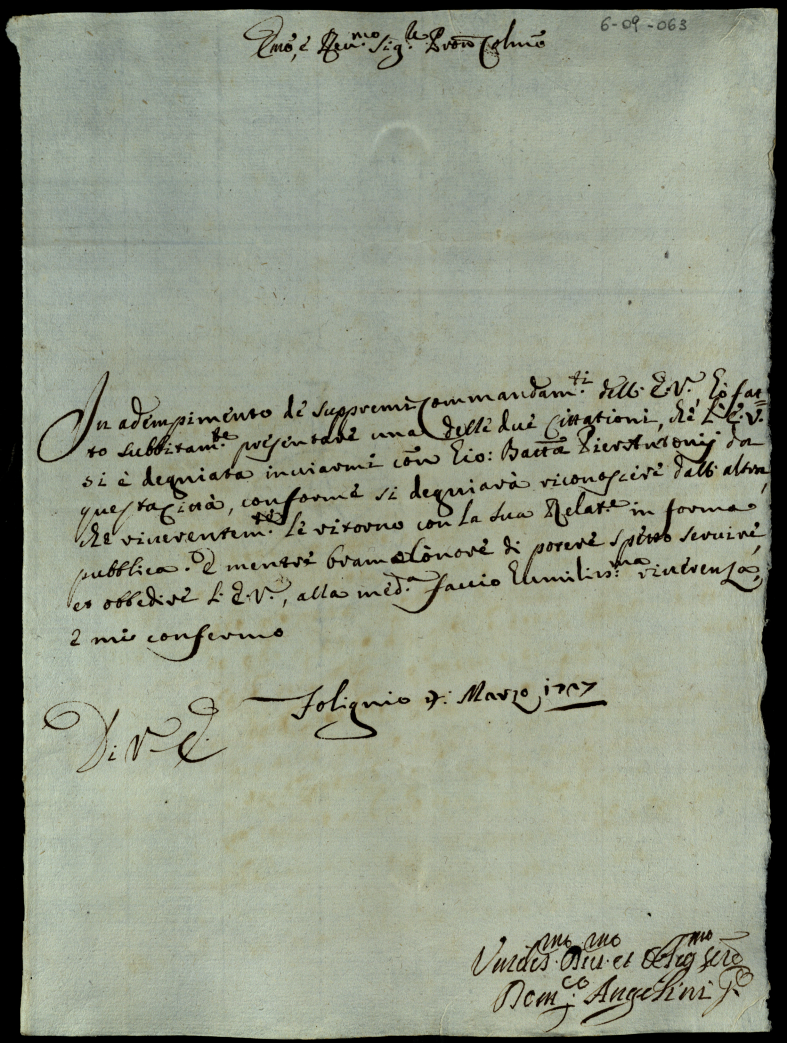 6-09-063
Emo, e Reu.mo Sig.re Prōn Colmo
In adempimento de suppremi Commandam.ti dell' E.V., hò fat=
to subbitam.te presentare una delle due Cittationi, che l'E.V.
si è degniata inuiarmi con Gio: Batta Pierantonij da
questa Città, conforme si degniarà riconoscere dall' altra,
che riuerentem.te le ritorno con la sua Relat.e in forma
pubblica. E mentre bramo l'onore di potere spesso seruire,
et obbedire l'E.V., alla med.a faccio humiliss.ma riuerenza,
e mi confermo
Folignio Marzo
Di V. E.
et
Dom.co Angelini